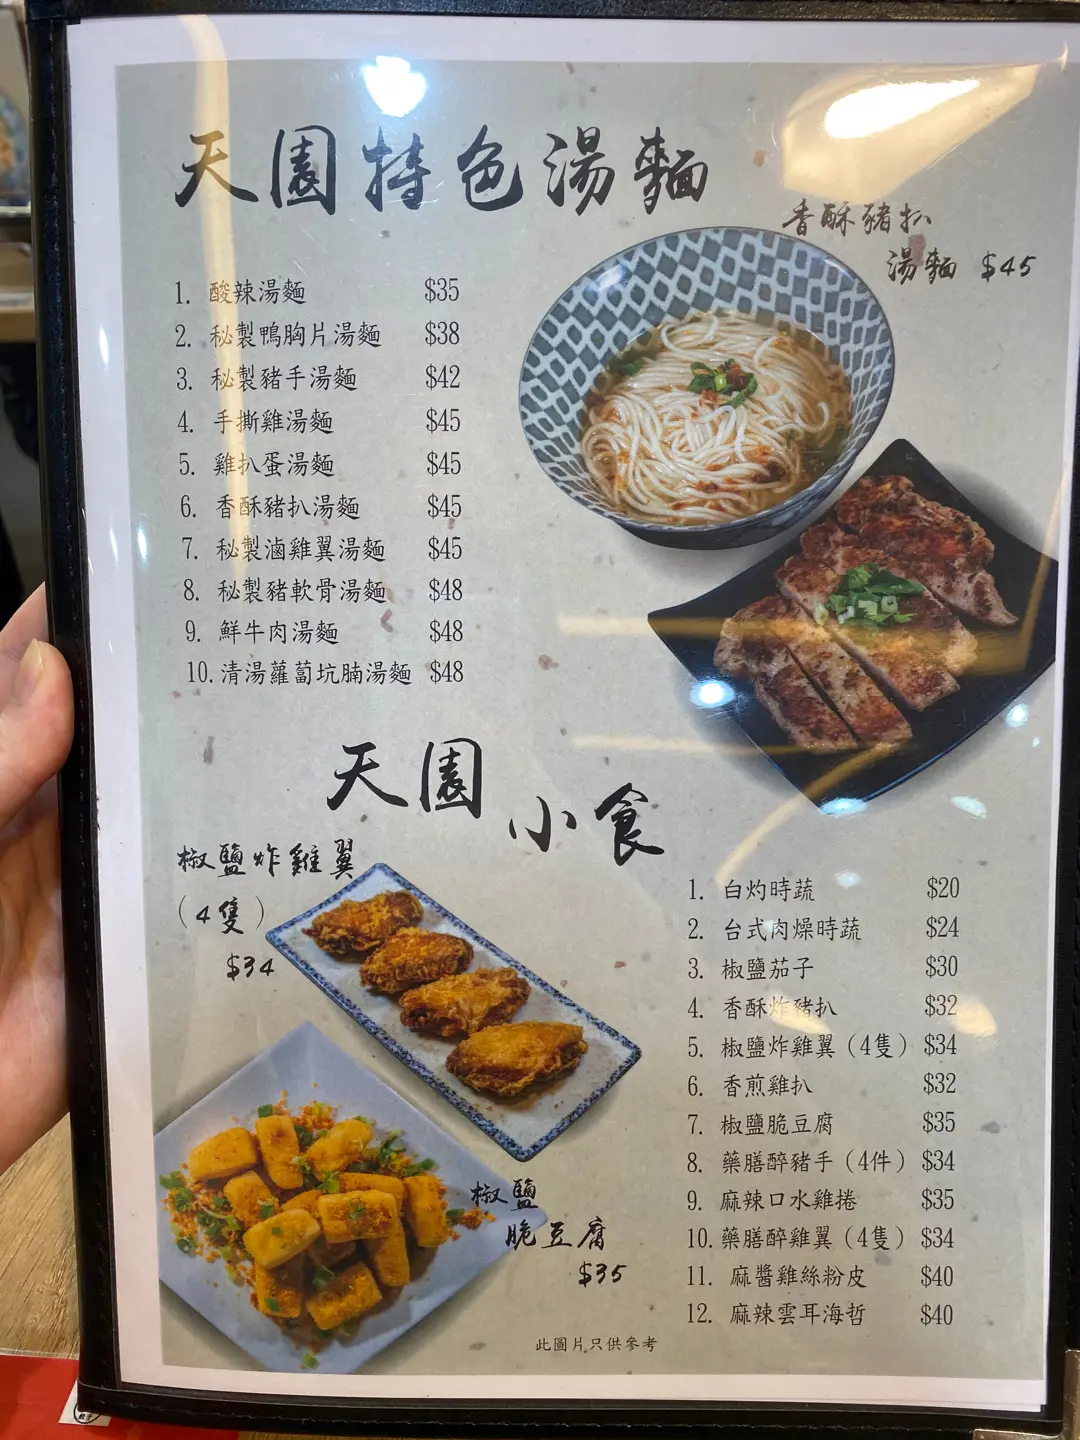 天園特色湯麵
香酥豬扒
湯麵 $45
1. 酸辣湯麵 $35
2. 秘製鴨胸片湯麵 $38
3. 秘製豬手湯麵 $42
4. 手撕雞湯麵 $45
5. 雞扒蛋湯麵 $45
6. 香酥豬扒湯麵 $45
7. 秘製滷雞翼湯麵 $45
8. 秘製豬軟骨湯麵 $48
9. 鮮牛肉湯麵 $48
10. 清湯蘿蔔坑腩湯麵 $48
天園
小食
椒鹽炸雞翼
(4隻)
$34
1. 白灼時蔬 $20
2. 台式肉燥時蔬 $24
3. 椒鹽茄子 $30
4. 香酥炸豬扒 $32
5. 椒鹽炸雞翼 (4隻) $34
6. 香煎雞扒 $32
7. 椒鹽脆豆腐 $35
8. 藥膳醉豬手 (4件) $34
9. 麻辣口水雞捲 $35
10. 藥膳醉雞翼 (4隻) $34
11. 麻醬雞絲粉皮 $40
12. 麻辣雲耳海哲 $40
椒鹽
脆豆腐
$35
此圖片只供參考